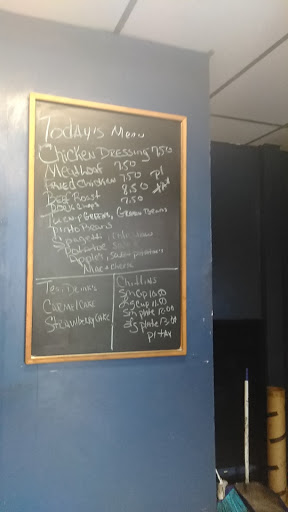 Today's Menu
Chicken Dressing 7.50
Meatloaf 7.50
Fried Chicken 7.50
Beef Roast 8.50
7.50
Turnip Greens, Green Beans
Pinto Beans
Spagetti
Potatoe Salad
Apples
Mac & Cheese
Tea, Drinks
Carmel Cake
Strawberry Cake
Chitlins
Sm cup
Lg cup
Sm plate 10.00
Lg plate 13.00